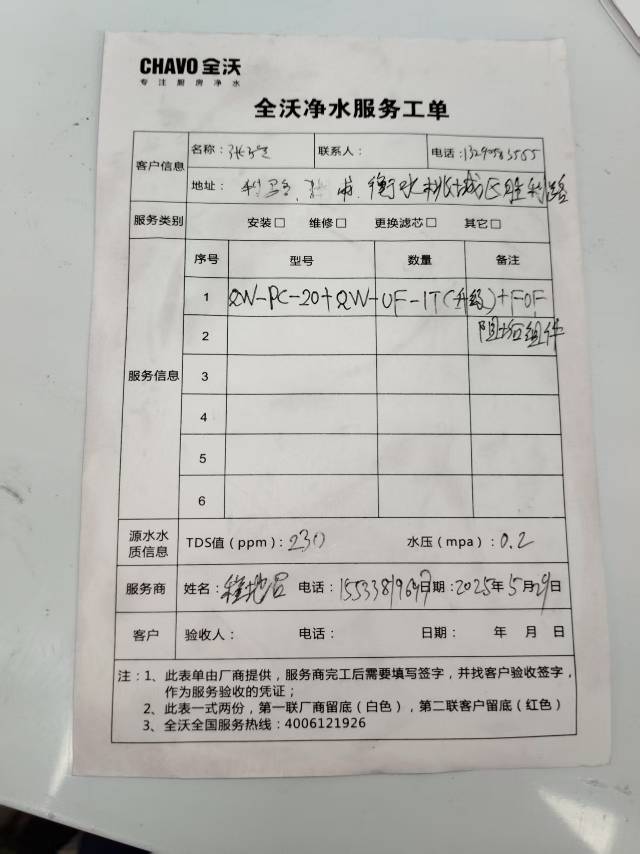 CHAVO 全沃
专注厨房净水
全沃净水服务工单
客户信息
名称：张
联系人：
电话：
地址： 衡水桃城区胜利路
服务类别
安装□ 维修□ 更换滤芯□ 其它□
服务信息
序号 型号 数量 备注
1 QW-PC-20+QW-UF-1T(升级)+FOF
2 阻垢组件
3
4
5
6
源水水质信息
TDS值（ppm）：230 水压（mpa）：0.2
服务商
姓名： 电话： 日期：2025年5月29日
客户
验收人： 电话： 日期： 年 月 日
注：1、此表单由厂商提供，服务商完工后需要填写签字，并找客户验收签字，
作为服务验收的凭证；
2、此表一式两份，第一联厂商留底（白色），第二联客户留底（红色）
3、全沃全国服务热线：4006121926